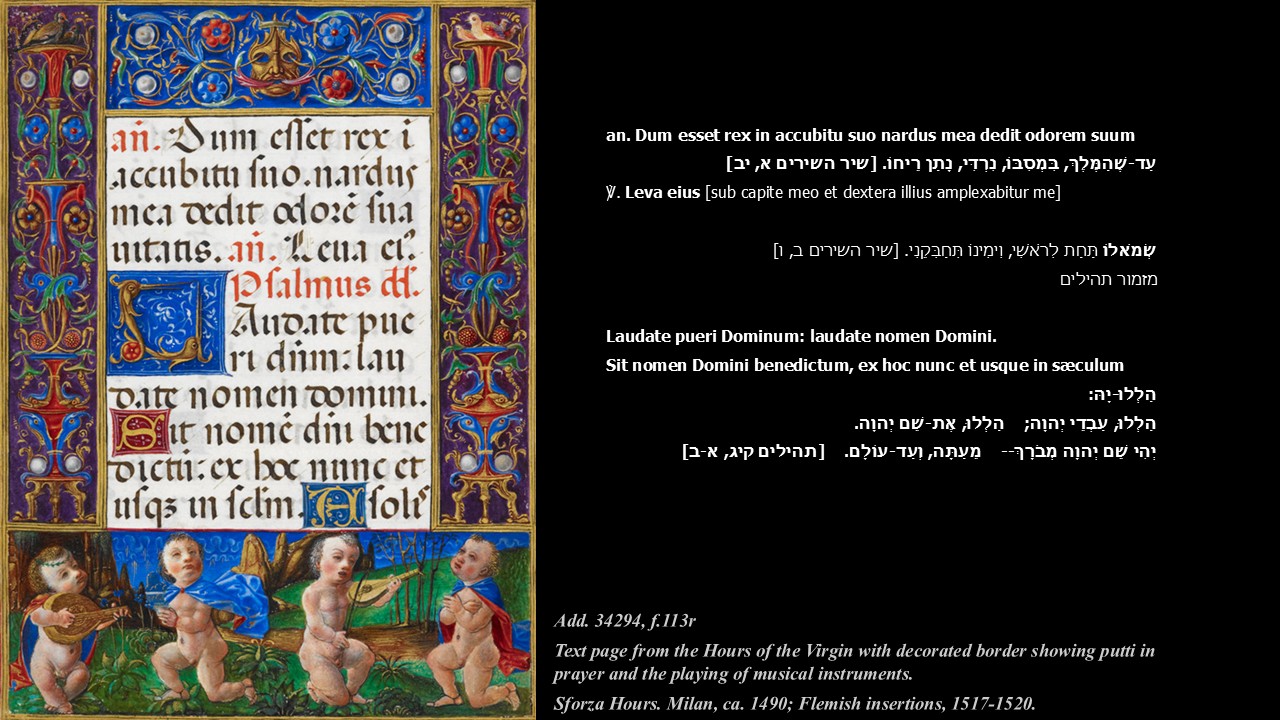 an̄. Dum esset rex i
accubitu suo. nardus
mea dedit odorē sua
uitatis. an̄. Leua eiꝰ.
Psalmus dd.
Laudate pue
ri dn̄m: lau
date nomen domini.
Sit nomē dn̄i bene
dictū: ex hoc nunc et
usqꝫ in sclm. A solis
an. Dum esset rex in accubitu suo nardus mea dedit odorem suum
עַד-שֶׁהַמֶּלֶךְ, בִּמְסִבּוֹ, נִרְדִּי, נָתַן רֵיחוֹ. [שיר השירים א, יב]
℣. Leva eius [sub capite meo et dextera illius amplexabitur me]
שְׂמֹאלוֹ תַּחַת לְרֹאשִׁי, וִימִינוֹ תְּחַבְּקֵנִי. [שיר השירים ב, ו]
מזמור תהילים
Laudate pueri Dominum: laudate nomen Domini.
Sit nomen Domini benedictum, ex hoc nunc et usque in sæculum
הַלְלוּ-יָהּ:
הַלְלוּ, עַבְדֵי יְהוָה; הַלְלוּ, אֶת-שֵׁם יְהוָה.
יְהִי שֵׁם יְהוָה מְבֹרָךְ-- מֵעַתָּה, וְעַד-עוֹלָם. [תהילים קיג, א-ב]
Add. 34294, f.113r
Text page from the Hours of the Virgin with decorated border showing putti in
prayer and the playing of musical instruments.
Sforza Hours. Milan, ca. 1490; Flemish insertions, 1517-1520.